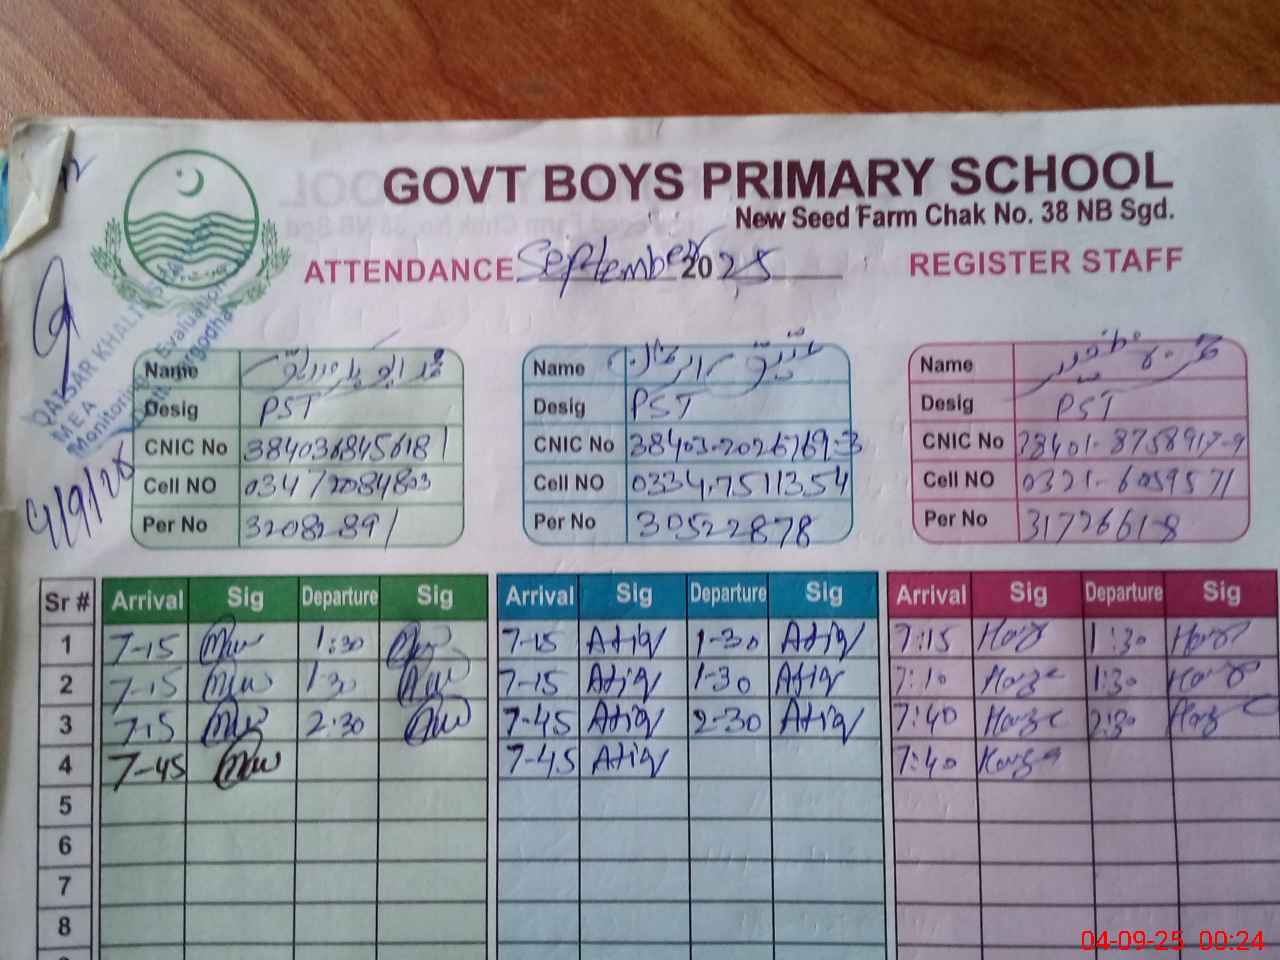 GOVT BOYS PRIMARY SCHOOL
New Seed Farm Chak No. 38 NB Sgd.
ATTENDANCE September 2025 REGISTER STAFF
QAISAR KHALI
MEA
Monitoring Evaluation
4/9/25
Name
Desig PST
CNIC No 3840368456181
Cell NO 03472084803
Per No 32082891
Name
Desig PST
CNIC No 38403-2026769-3
Cell NO 0334-7511354
Per No 30522878
Name
Desig PST
CNIC No 38401-8758917-9
Cell NO 0321-6059571
Per No 31726618
Sr # Arrival Sig Departure Sig Arrival Sig Departure Sig Arrival Sig Departure Sig
1 7-15 1:30 7-15 Atiq 1-30 Atiq 7:15 1:30
2 7-15 1-30 7-15 Atiq 1-30 Atiq 7:10 1:30
3 7-15 2:30 7-45 Atiq 2-30 Atiq 7:40 2:30
4 7-45 7-45 Atiq 7:40
5
6
7
8
04-09-25 00:24